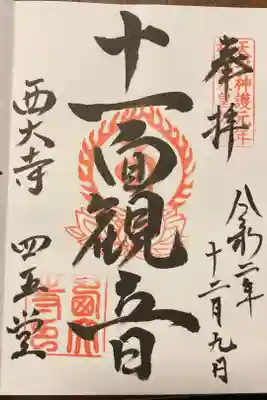 天平神護元年
奉拝
令和二年
十二月九日
十一面観音
西大寺 四王堂